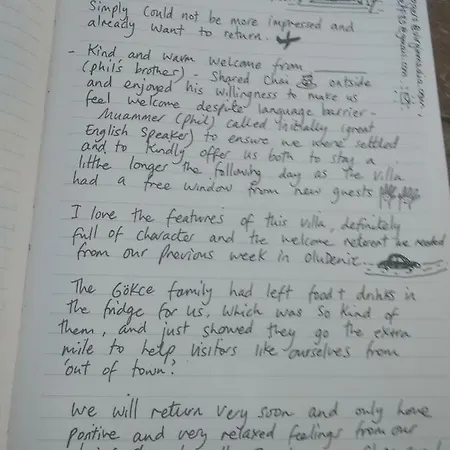 Simply could not be more impressed and
already want to return.
- Kind and warm welcome from
(Phil's brother) - Shared Chai outside
and enjoyed his willingness to make us
feel welcome despite language barrier -
Muammer (Phil) called initially (great
English speaker) to ensure we were settled
and to kindly offer us both to stay a
little longer the following day as the villa
had a free window from new guests
I love the features of this villa, definitely
full of character and the welcome retreat we needed
from our previous week in Oludeniz...
The GÖKCE family had left food + drinks in
the fridge for us. Which was so kind of
them, and just showed they go the extra
mile to help visitors like ourselves from
'out of town'!
We will return very soon and only have
positive and very relaxed feelings from our